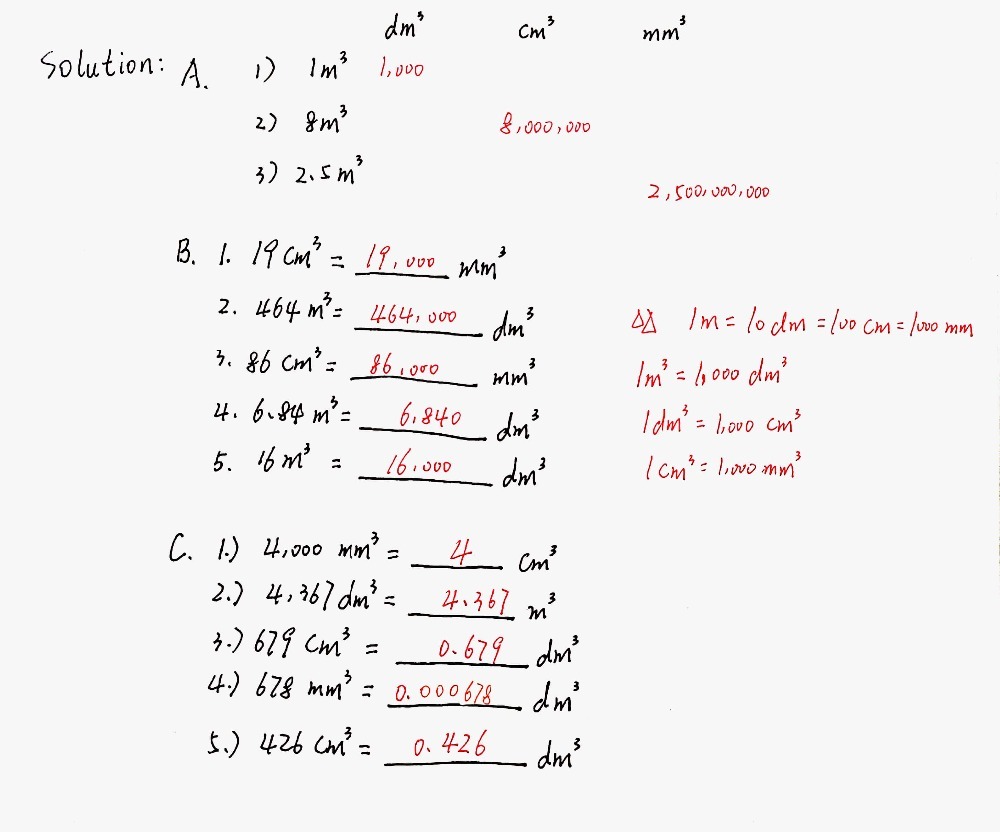 dm³ cm³ mm³
Solution: A. 1) 1m³ 1,000
2) 8m³ 8,000,000
3) 2.5m³ 2,500,000,000
B. 1. 19cm³ = 19,000 mm³
2. 464m³ = 464,000 dm³
3. 86cm³ = 86,000 mm³
4. 6.84m³ = 6,840 dm³
5. 16m³ = 16,000 dm³
1m = 10dm = 100cm = 1000mm
1m³ = 1,000 dm³
1dm³ = 1,000 cm³
1cm³ = 1,000 mm³
C. 1.) 4,000 mm³ = 4 cm³
2.) 4,367dm³ = 4.367 m³
3.) 679cm³ = 0.679 dm³
4.) 678 mm³ = 0.000678 dm³
5.) 426cm³ = 0.426 dm³